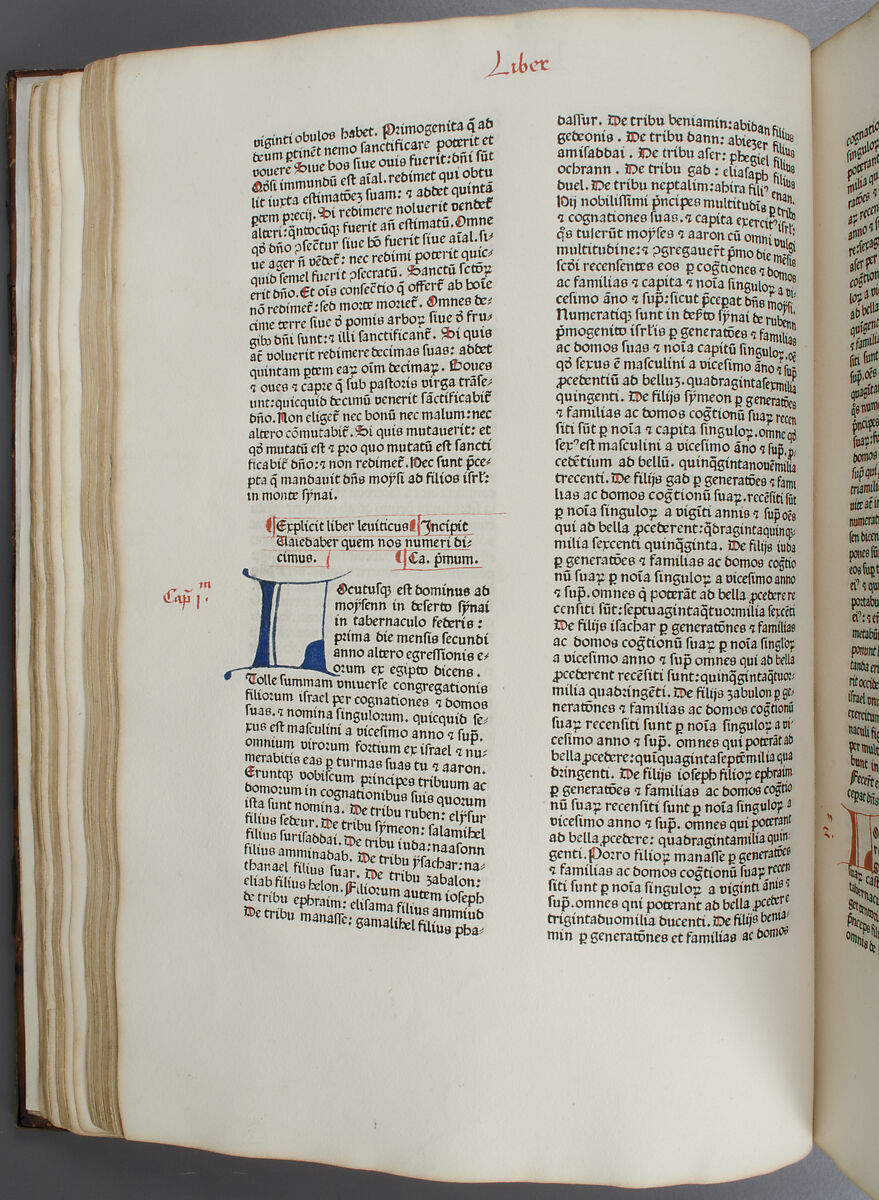 Liber
viginti obulos habet. Primogenita q̃ ad
deum ꝑtinẽt nemo sanctificare poterit et
vovere Siue bos siue ouis fuerit: dñi sũt
Qđsi immundũ est aĩal. redimet qui obtu
lit iuxta estimatõeʒ suam: ⁊ addet quintã
ꝑtem precij. Si redimere noluerit vendet̃
alteri: q̃ntocũqʒ fuerit añ estimatũ. Omne
qđ dño ↄsecr̃tur siue hõ fuerit siue aĩal. si⸗
ue ager ñ vẽdet̃: nec redimi poterit quic⸗
quid semel fuerit ↄsecratũ. Sanctũ sctõꝝ
erit dño. Et oĩs consecr̃tio q̃ offert̃ ab hoĩe
nõ redimet̃: sed morte moriet̃. Omnes de⸗
cime terre siue õ pomis arboꝝ siue õ fru⸗
gibꝰ dñi sunt: ⁊ illi sanctificant̃. Si quis
aũt voluerit redimere decimas suas: addet
quintam ꝑtem eaꝝ oĩm decimaꝝ. Boues
⁊ oues ⁊ capre q̃ sub pastoris virga trãse⸗
unt: quicquid decimũ venerit sãctificabit̃
dño. Non eliget̃ nec bonũ nec malum: nec
altero cõmutabit̃. Si quis mutauerit: et
qđ mutatũ est ⁊ pro quo mutatũ est sancti
ficabit̃ dño: ⁊ non redimet̃. Hec sunt p̃ce⸗
pta q̃ mandauit dñs moysi ad filios isrl̃:
in monte synai.
Explicit liber leuiticus Incipit
Uaiedaber quem nos numeri di⸗
cimus. Ca. p̃mum.
Cap̃ 1.m
LOcutusqʒ est dominus ad
moysenn in deserto synai
in tabernaculo federis:
prima die mensis secundi
anno altero egressionis e⸗
orum ex egipto dicens.
Tolle summam vniuerse congregationis
filiorum israel per cognationes ⁊ domos
suas. ⁊ nomina singulorum. quicquid se⸗
xus est masculini a vicesimo anno ⁊ sup̃.
omnium virorum fortium ex israel ⁊ nu⸗
merabitis eas ꝑ turmas suas tu ⁊ aaron.
Eruntqʒ vobiscum principes tribuum ac
domorum in cognationibus suis quorum
ista sunt nomina. De tribu ruben: elysur
filius sedeur. De tribu symeon: salamihel
filius surisaddai. De tribu iuda: naasonn
filius amminadab. De tribu ysachar: na⸗
thanael filius suar. De tribu zabalon:
eliab filius helon. Filiorum autem ioseph
de tribu ephraim: elisama filius ammiud
De tribu manasse: gamalihel filius pha⸗
dassur. De tribu beniamin: abidan filius
gedeonis. De tribu dann: abiezer filius
amisaddai. De tribu aser: phegiel filius
ochrann. De tribu gad: eliasaph filius
duel. De tribu neptalim: ahira filiꝰ enan.
Hij nobilissimi p̃ncipes multitudĩs ꝑ tribꝰ
⁊ cognationes suas. ⁊ capita exercitꝰ isrl̃:
q̃s tulerũt moyses ⁊ aaron cũ omni vulgi
multitudine: ⁊ ↄgregauer̃t p̃mo die mẽsis
scđi recensentes eos ꝑ cogt̃iones ⁊ domos
ac familias ⁊ capita ⁊ noĩa singuloꝝ a vi⸗
cesimo ãno ⁊ sup̃: sicut p̃cepat dñs moysi.
Numeratiqʒ sunt in deser̃to synai de rubenn
p̃mogenito isrl̃is ꝑ generatões ⁊ familias
ac domos suas ⁊ noĩa capitũ singuloꝝ. oẽ
qđ sexus ẽ masculini a vicesimo ãno ⁊ sup̃
ꝓcedentiũ ad belluʒ. quadragintasexmilia
quingenti. De filijs symeon ꝑ generatões
⁊ familias ac domos cogt̃ionũ suaꝝ recen
siti sũt ꝑ noĩa ⁊ capita singuloꝝ. omne qđ
sexꝰ est masculini a vicesimo ãno ⁊ sup̃. ꝓ⸗
cedẽtium ad bellũ. quinq̃gintanouẽmilia
trecenti. De filijs gad ꝑ generatões ⁊ fami
lias ac domos cogt̃ionũ suaꝝ. recẽsiti sũt
ꝑ noĩa singuloꝝ a vigĩti annis ⁊ sup̃ oẽs
qui ad bella ꝓcederent: q̃dragintaquinqʒ⸗
milia sexcenti quinq̃ginta. De filijs iuda
ꝑ generatões ⁊ familias ac domos cogt̃io
nũ suaꝝ ꝑ noĩa singuloꝝ a vicesimo anno
⁊ sup̃. omnes q̃ poterãt ad bella ꝓcedere re
censiti sũt: septuagintaq̃tuormilia sexcẽti
De filijs isachar ꝑ generatõnes ⁊ familias
ac domos cogt̃ionũ suaꝝ ꝑ noĩa singloꝝ
a vicesimo anno ⁊ sup̃ omnes qui ad bella
ꝓcederent recẽsiti sunt: quinq̃gintaq̃tuor⸗
milia quadringẽti. De filijs zabulon ꝑ ge⸗
neratões ⁊ familias ac domos cogt̃ionũ
suaꝝ recensiti sunt ꝑ noĩa singuloꝝ a vi⸗
cesimo anno ⁊ sup̃. omnes qui poterãt ad
bella ꝓcedere: quĩquagintaseptẽmilia qua
dringenti. De filijs ioseph filioꝝ ephraim
ꝑ generatões ⁊ familias ac domos cogt̃io
nũ suaꝝ recensiti sunt ꝑ noĩa singuloꝝ a
vicesimo anno ⁊ sup̃. omnes qui poterant
ad bella ꝓcedere: quadragintamilia quin⸗
genti. Porro filioꝝ manasse ꝑ generatões
⁊ familias ac domos cogt̃ionũ suaꝝ recen
siti sunt ꝑ noĩa singuloꝝ a viginti ãnis ⁊
sup̃. omnes qui poterant ad bella ꝓcedere
trigintaduomilia ducenti. De filijs benia⸗
min ꝑ generatõnes et familias ac domos